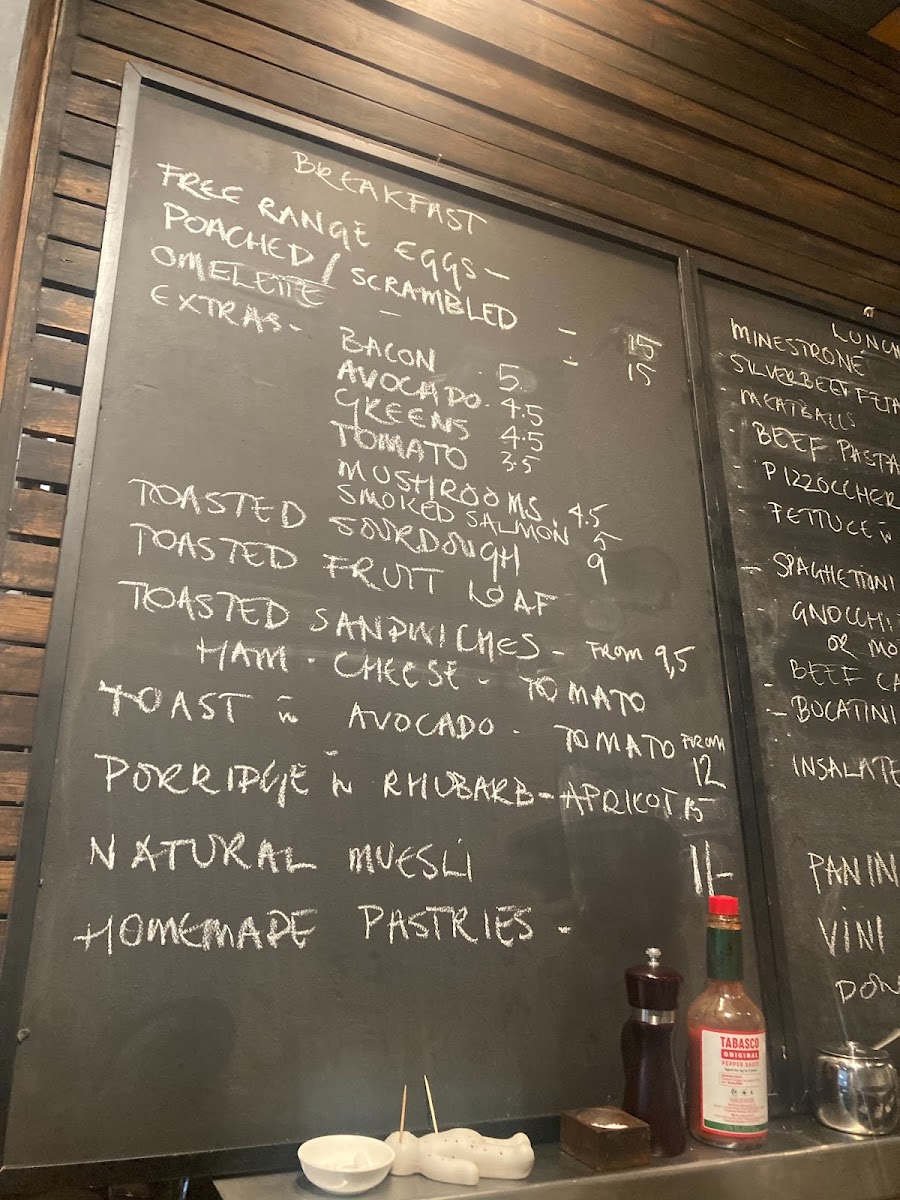 BREAKFAST
FREE RANGE EGGS -
POACHED / SCRAMBLED - 15
OMELETTE - - 15
EXTRAS - BACON . 5.
AVOCADO. 4.5
GREENS 4.5
TOMATO 3.5
MUSHROOMS. 4.5
SMOKED SALMON 5
TOASTED SOURDOUGH 9
TOASTED FRUIT LOAF
TOASTED SANDWICHES - FROM 9,5
HAM . CHEESE - TOMATO
TOAST w AVOCADO . TOMATO FROM 12
PORRIDGE w RHUBARB - APRICOT 15
NATURAL MUESLI 11-
HOMEMADE PASTRIES -
LUNCH
MINESTRONE
SILVERBEET FETA
MEATBALLS
- BEEF PASTA
- PIZZOCCHER
- FETTUCE w
- SPAGHETTONI
- GNOCCHI
OR MO
- BEEF CA
- BOCATINI
INSALATE
PANINI
VINI
DOW
TABASCO
ORIGINAL
PEPPER SAUCE